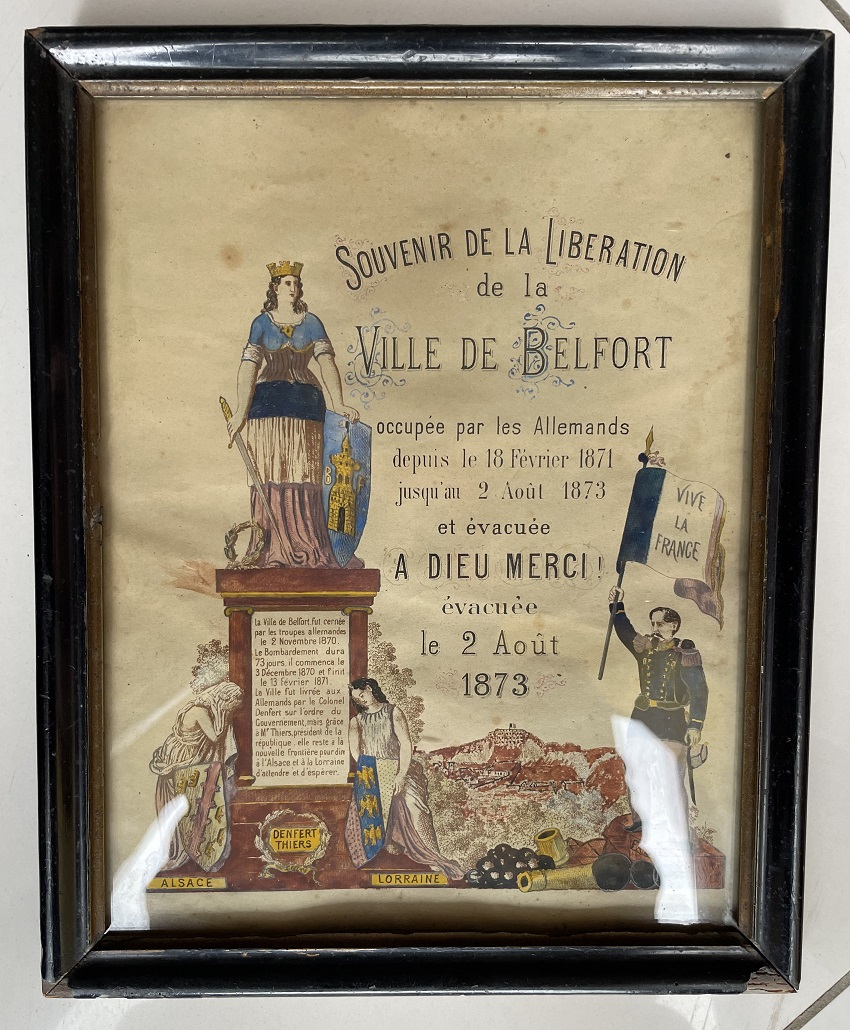 SOUVENIR DE LA LIBERATION
de la
VILLE DE BELFORT
occupée par les Allemands
depuis le 18 Février 1871
jusqu'au 2 Août 1873
et évacuée
A DIEU MERCI!
évacuée
le 2 Août
1873
VIVE
LA
FRANCE
B
La Ville de Belfort, fut cernée
par les troupes allemandes
le 2 Novembre 1870.
Le Bombardement dura
73 jours, il commenca le
3 Décembre 1870 et finit
le 13 février 1871.
La Ville fut livrée aux
Allemands par le Colonel
Denfert sur l'ordre du
Gouvernement, mais grâce
à Mr Thiers, president de la
république, elle reste a la
nouvelle frontière pour dire
à l'Alsace et à la Lorraine
d'attendre et d'espérer.
DENFERT
THIERS
ALSACE
LORRAINE